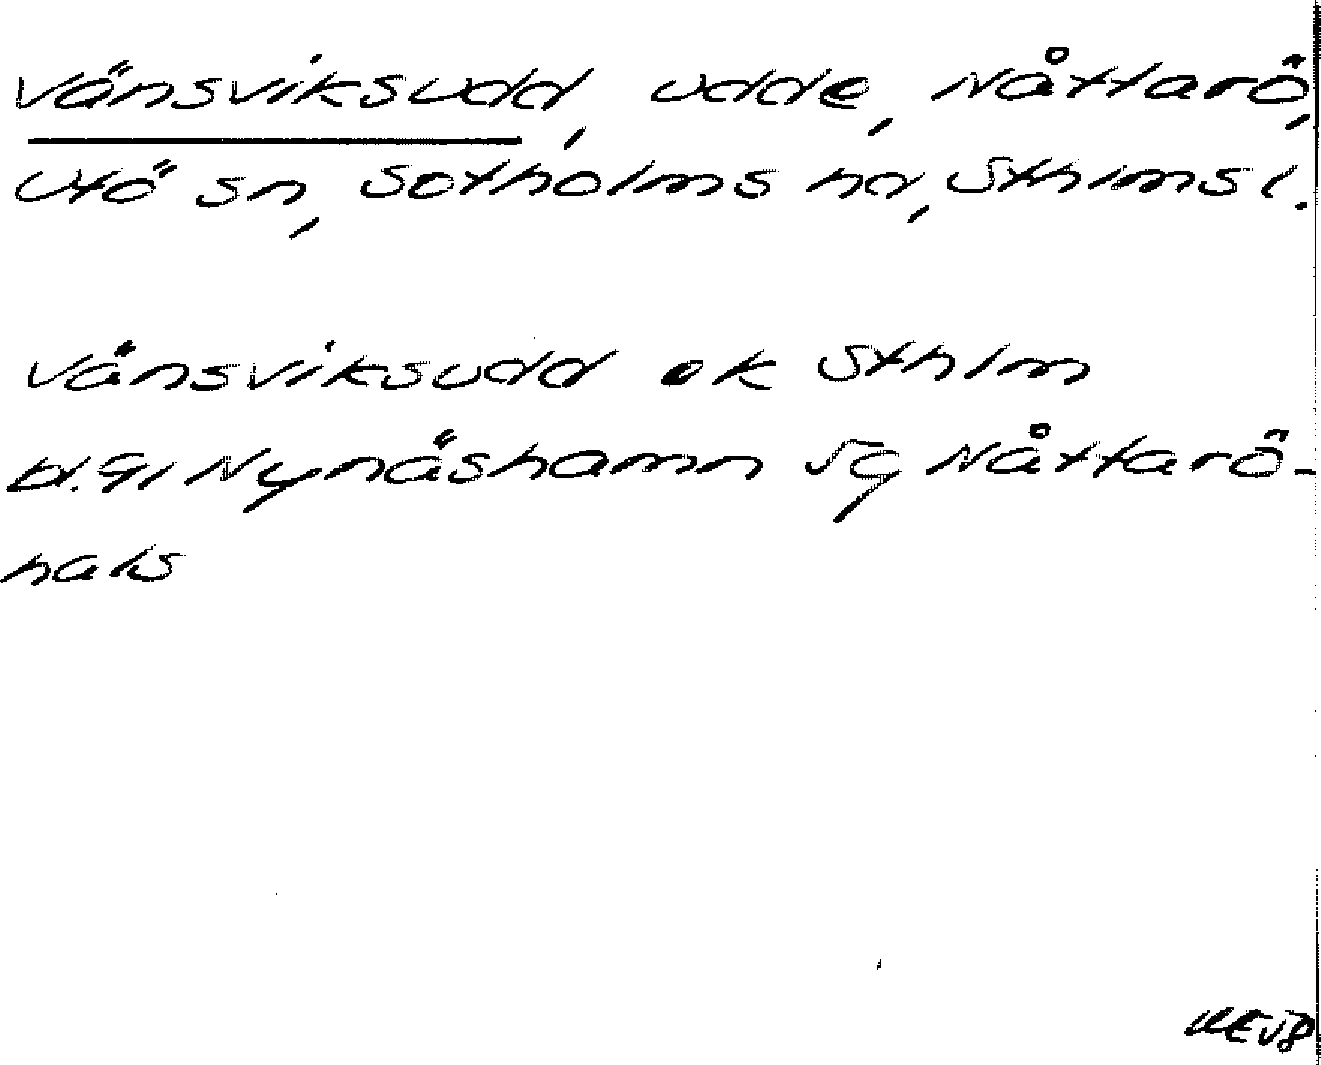 Vänsviksudd, udde, Nåttarö,
Utö sn, Sotholms hd, Sthlms l.
Vänsviksudd ek Sthlm
bl. 91 Nynäshamn Sg Nåttarö-
hals